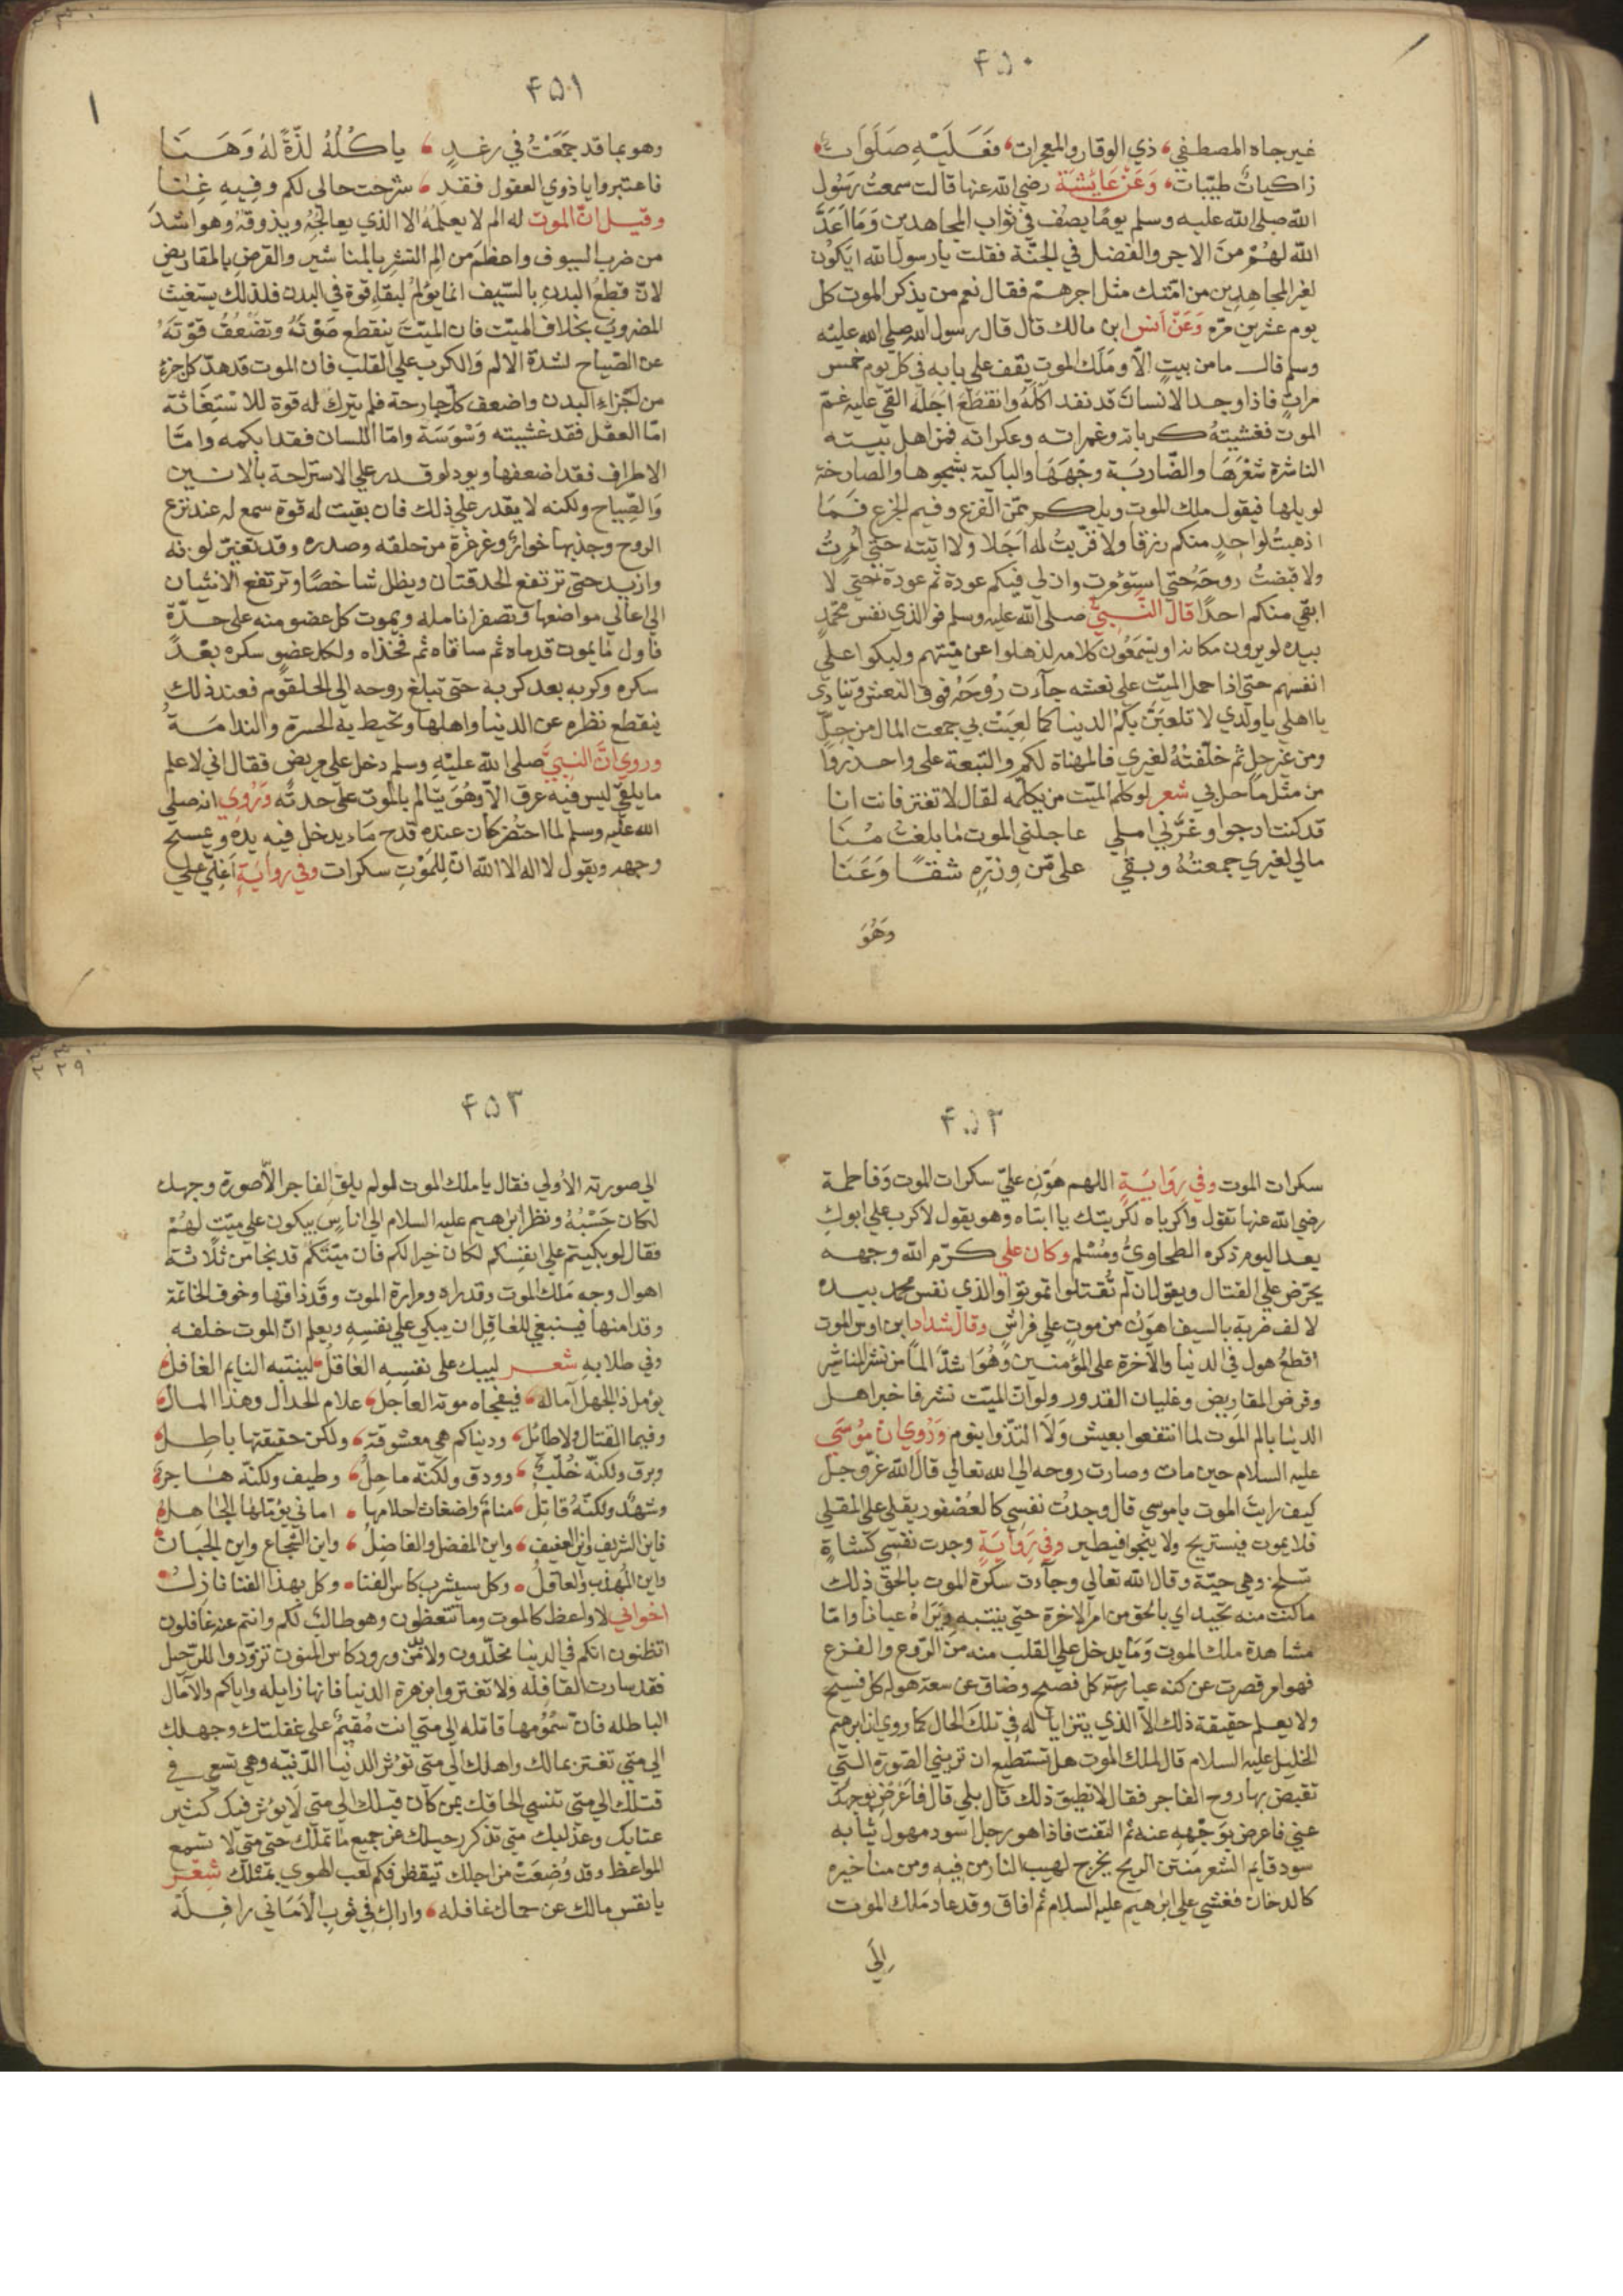 ۴۵۰
غير جاه المصطفي ذي الوقار والمعجزات فعَلَيْهِ صَلَوَات
زاكياتٌ طيّبات وَعَنْ عَايِشَة رضي الله عنها قالت سمعتُ رَسُول
الله صلى الله عليه وسلم يومًا يصف في ثواب المجاهدين وَمَا اَعَدَّ
الله لهُمْ منَ الاجر والفضل في الجنّة فقلت يا رسول الله ايَكُون
لغير المجاهِدِين من امّتك مثل اجرهمْ فقال نعم من يذكر الموت كل
يوم عشرين مرّه وَعَنْ اَنس ابن مالك قال قال رسول الله صلي الله عليْه
وسلم قال ما من بيتٍ الاّ ومَلَك الموت يقف على بابه في كل يوم خمس
مراتٍ فاذا وجد الانسانَ قد نفد اكلُهُ وانقطعَ اجَلُه القي عليه غمّ
الموت فغشيتهُ كرباته وغمراته وعكراته فمن اهل بيته
الناشرة شعْرَهَا والضّاربَة وجْهَهَا والباكية بشجوها والصارخة
لويلها فيقول ملك الموت ويلكم ممّن الفزع وفيم الجزع فَمَا
اذهبتُ لواحدٍ منكم رزقا ولا قرّبتُ له اَجَلا ولا اتيته حتّي اُمرتُ
ولا قبضتُ روحَهُ حتي استؤمرت وان لي فيكم عودة ثم عودة حتي لا
ابقي منكم احدًا قال النَّبيُّ صلى الله عليه وسلم فوالذي نفس محمّدٍ
بيده لو يرون مكانه او يسْمَعُون كلامه لذهلوا عن ميّتهم ولبكوا على
انفسهم حتّي اذا حمل الميّت على نعشه جآءت رُوحَهُ فوق النعش وينادي
يا اهلي يا ولدي لا تلعبَنّ بكُم الدنيا كما لعِبَتْ بي جمعت المال من حِلّ
ومن غير حل ثم خلّفتُهُ لغيري فالمهناة لكم والتّبعة على واحذروا
من مثل ما حل بي شعر لو كلم الميّت من يكلمه لقال لا تغتر فانت انا
قد كنت ارجوا وغرَّني املي عاجلني الموت لما بلغت مُنَا
مالي لغيري جمعتهُ وبقي على مّن وِزرِه شقًا وَعَنَا
وَهُوَ
۴۵۱
وهو بما قد جمَعَتْ في رغدٍ ياكُلُهُ لذّةً لهُ وَهَنَا
فاعتبروا يا ذوي العقول فقد شرحت حالى لكم وفِيهِ غِنَا
وقيل انّ الموت له الم لا يعلمُهُ الا الذي يعالجُهُ ويذوقهُ وهو اشد
من ضرب السيوف واعظم من الم النشر بالمناشير والقرض بالمقاريض
لانّ قطعُ البدنِ بالسّيف انما يؤلمُ لبقاءِ قوة في البدن فلذلك يستغيث
المضروبُ بخلاف الميّت فان الميّتَ ينقطع صَوْتَهُ وتضْعُفُ قوّتَهُ
عن الصّياح لشدة الالم وَالكرب علي القلب فان الموت قد هدّ كل جزءٍ
من اجزاءِ البدن واضعف كلّ جارحة فلم يترك له قوة للاسْتِغَاثة
امّا العقل فقد غشيته وَسْوَسَة وامّا اللسان فقد ابكمه وامّا
الاطراف فقد اضعفها ويود لو قدر علي الاستراحة بالانين
وَالصِّياح ولكنه لا يقدر علي ذلك فان بقيت له قوة سمع له عند نزع
الروح وجذبها خوارٌ وغرغرة من حلقه وصدره وقد تغيرّ لونه
وازبد حتى ترتفع الحدقتان ويظل شاخصًا وترتفع الانثيان
الي اعالي مواضعها وتصفر انامله ويموت كل عضو منه على حدّة
فاول ما يموت قدماه ثم ساقاه ثم فخذاه ولكل عضوٍ سكره بعْدَ
سكره وكربه بعد كربة حتى تبلغ روحه الى الحلقوم فعند ذلك
ينقطع نظره عن الدنيا واهلها وتحيط به الحسرة والندامَة
وروي انّ النبيّ صلى الله عليْهِ وسلم دخل علي مريضٍ فقال اني لا علم
ما يلقي ليس فيه عرق الاّ وهُوَ يتالم بالموت على حدتُه وَرُوي انه صلى
الله عليه وسلم لما احتُضِر كان عنده قدح مَاء يدخل فيه يده ويمسح
وجهه ويقول لا اله الا الله انّ لِلْمَوْتِ سكرات وفي روايَةٍ اعنّي علي
۴۵۲
سكرات الموت وفي رِوَايَةٍ اللهم هَوّن عليّ سكرات الموت وَفاطمة
رضي الله عنها تقول واكرباه لكربتك يا ابتاه وهو يقول لا كرب علي ابوكِ
بعد اليوم ذكره الطحاويُّ ومُسْلم وكان علي كرّم الله وجهه
يحرّض علي القتال ويقول ان لم تُقتلوا تموتوا والذي نفس محمد بيده
لالف ضربة بالسيف اهوَنُ من موتٍ علي فراشٍ وقال شداد ابن اوس الموت
افظعُ هول في الدنيا والآخرة على المؤمنين وَهُوَ اشدّ المًا من نشر المناشير
وقرض المقاريض وغليان القدور ولو انّ الميّت نشر فاخبر اهل
الدنيا بالم الموت لما انتفعوا بعيش وَلَا التذّوا بنوم وَرُوِيَ ان مُوسَي
عليه السلام حين مات وصارت روحه الي الله تعالي قال الله عزّ وجلّ
كيف رايت الموت يا موسي قال وجدتُ نفسِي كالعُصْفور يقلي على المقلي
فلا يموت فيستريح ولا ينجوا فيطير وفي رِوَايَةٍ وجدت نفسي كشاةٍ
تسلخ وهي حيّة وقال الله تعالي وجآءت سكرة الموت بالحقّ ذلك
ما كنت منه تحيد اي بالحق من امر الاخرة حتى ينتبه وَيَرَاهُ عيانا وامّا
مشاهدة ملك الموت وَمَا يدخل علي القلب منه من الرّوع والفزع
فهو امر قصرت عن كنه عبارته كل فصيح وضاق عن سعة هوله كل فسيح
ولا يعلم حقيقة ذلك الا الذي يتزايا له في تلكَ الحال كما روي ان ابرهيم
الخليل عليه السلام قال لملك الموت هل تستطيع ان تريني الصّورة التي
تقبض بها روح الفاجر فقال لا تطيق ذلك قال بلي قال فاَعْرِضْ بوجهك
عنّي فاعرض بوَجْهه عنه ثم التفت فاذا هو رجل اسود مهول ثيابه
سود قايم الشعر منتن الريح يخرج لهيب النار من فيهِ ومن مناخيره
كالدخان فغشي علي ابرهيم عليه السلام ثم افاق وقد عاد مَلك الموت
اِلَي
۲۹
۴۵۳
الي صورته الأولي فقال يا ملك الموت لو لم يلق الفاجر الاّ صورة وجهك
لكان حَسْبُهُ ونظر ابرهيم عليه السلام الي اناسٍ يبكون علي ميّت لهُمْ
فقال لو بكيتم علي انفسكم لكان خيرا لكم فان ميّتَكم قد نجا من ثلاثة
اهوال وجه مَلك الموت وقد راه ومرارة الموت وقَد ذاقها وخوف الخاتمة
وقد امنها فينبغي للعَاقِل ان يبكي علي نفسِهِ ويعلم انّ الموت خلفه
وفي طلابهِ شعر ليبك على نفسِهِ الغَاقلُ لينتبه النايم الغافل
يؤمل ذا الجهل آماله فيفجاه موته العاجل علام الجدال وهذا المال
وفيما القتال ولا طائل ودنياكم هي معشوقة ولكن حقيقتها باطل
وبرق ولكنّه خُلّبٌ وودق ولكنّه ماحِلُ وطيف ولكنّه هاجرة
وشهدٌ ولكنّهُ قاتِلُ منامٌ واضغاث احلامها اماني يؤمّلها الجاهل
فاين الشريف واين العفيف واين المفضل والفاضِلُ واين الشجاع واين الجَبان
واين المهذب والعاقل وكل سيشرب كاس الفنا وكل بهذا الفنا نازل
اخواني لا واعظ كالموت وما تتعظون وهو طالبٌ لكم وانتم عنه غافلون
اتظنون انكم في الدنيا مخلّدون ولابدّ من ورود كاس المنون تزوّدوا للرّحيل
فقد سارت القافِله وَلا تغتروا بزهرة الدنيا فانها زايله واياكم والآمال
الباطله فانّ سُمُوُمهَا قاتله الى متي انت مُقيمٌ علي غفلتك وجهلك
الي متي تغتر بمالك واهلك الي متي تؤثر الدنيا الدّنيّه وهي تسعى في
قتلك الي متي تنسي الحاقك بمن كان قبلك الي متي لا يؤثر فيك كثير
عتابك وعذليك متي تذكر رحيلك عن جميع ما تملك حتى متي لا تسمع
المواعظ وقد وُضِعَتْ من اجلك تيقظ فكم لعب الهوي بمثلك شِعْر
يا نفس مالك عن حمالك غافله واراك في ثوب الاَمَاني رافِلَهْ